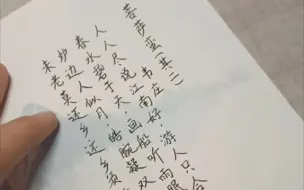 菩萨蛮(其二)
韦庄
人人尽说江南好,游人只合
春水碧于天,画船听雨眠
炉边人似月,皓腕凝双
未老莫还乡,还乡须